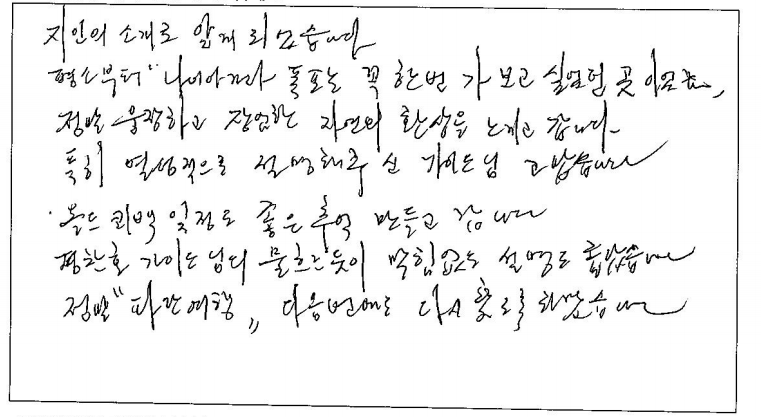 지인의 소개로 알게 되었습니다
평소부터 "나이아가라 폭포는 꼭 한번 가 보고 싶었던 곳이었고,
정말 웅장하고 장엄한 자연의 환상을 느끼고 갑니다.
특히 열성적으로 설명해 주신 가이드님 고맙습니다
올드 퀘백 일정도 좋은 추억 만들고 갑니다
평찬호 가이드님의 물흐르듯이 막힘없는 설명도 좋았습니다
정말 "파란여행" 다음번에도 다시 찾도록 하겠습니다